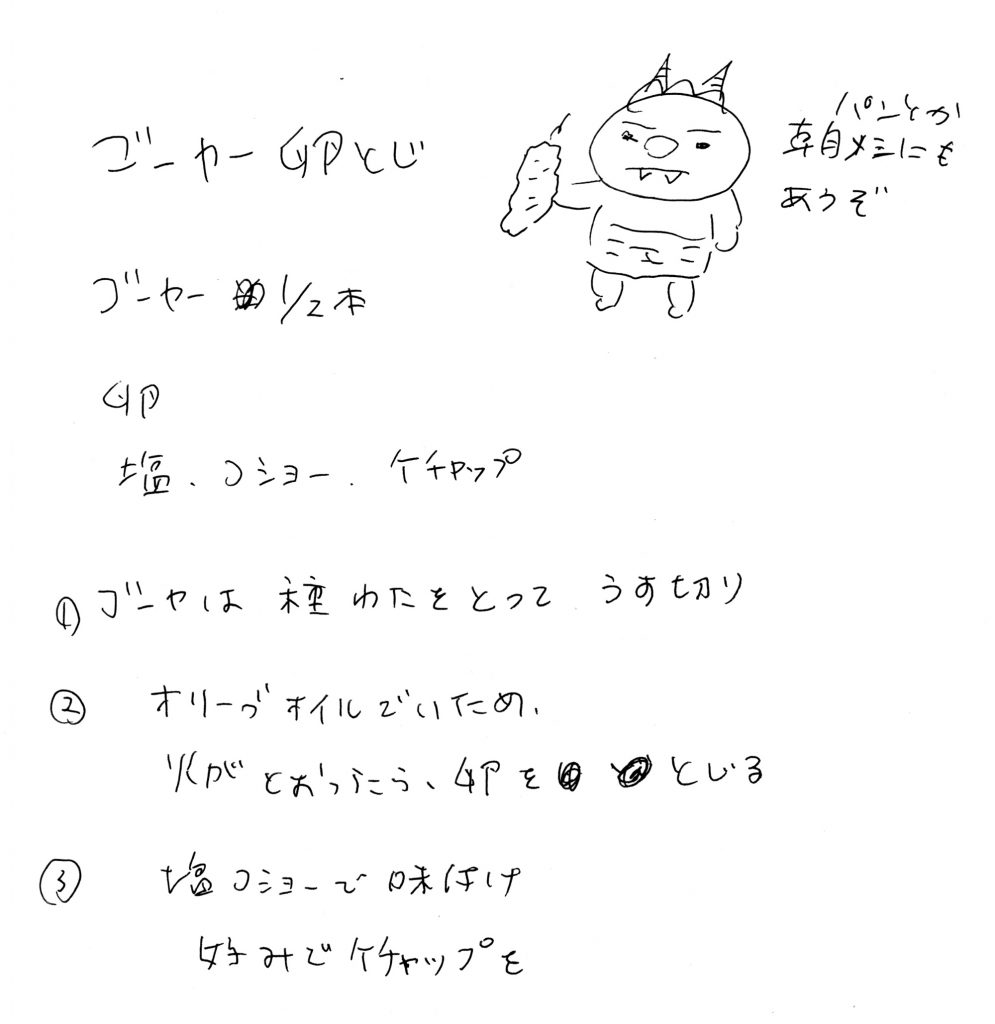 ゴーヤー卵とじ
パンとか
朝メシにも
あうぞ
ゴーヤー 1/2本
卵
塩、コショー、ケチャップ
① ゴーヤは 種わたをとって うす切り
② オリーブオイルでいため、
火がとおったら、卵を とじる
③ 塩コショーで味付け
好みでケチャップを